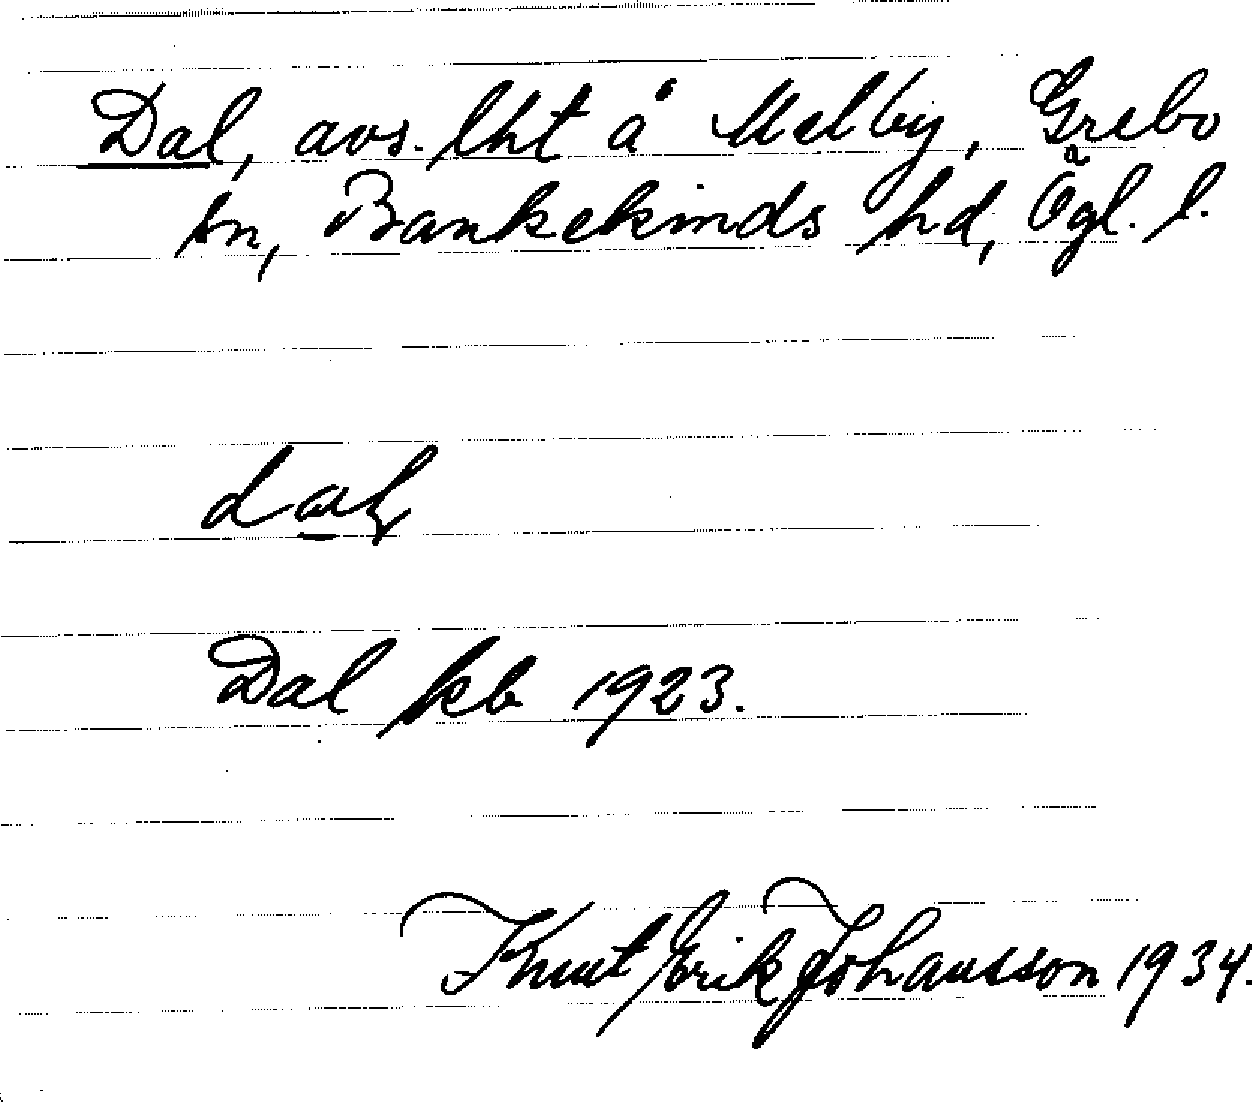 Dal, avs. lht å Melby, Grebo
sn, Bankekinds hd, Ögl. l.
Dal kb 1923.
Knut Erik Johansson 1934.